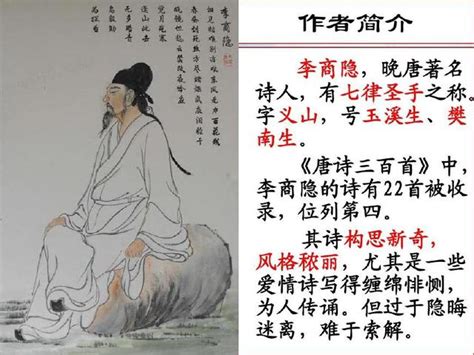 李商隐
东风无力百花残
蓬山此去
无多路青
作者简介
李商隐，晚唐著名
诗人，有七律圣手之称。
字义山，号玉溪生、樊
南生。
《唐诗三百首》中，
李商隐的诗有22首被收
录，位列第四。
其诗构思新奇，
风格秾丽，尤其是一些
爱情诗写得缠绵悱恻，
为人传诵。但过于隐晦
迷离，难于索解。